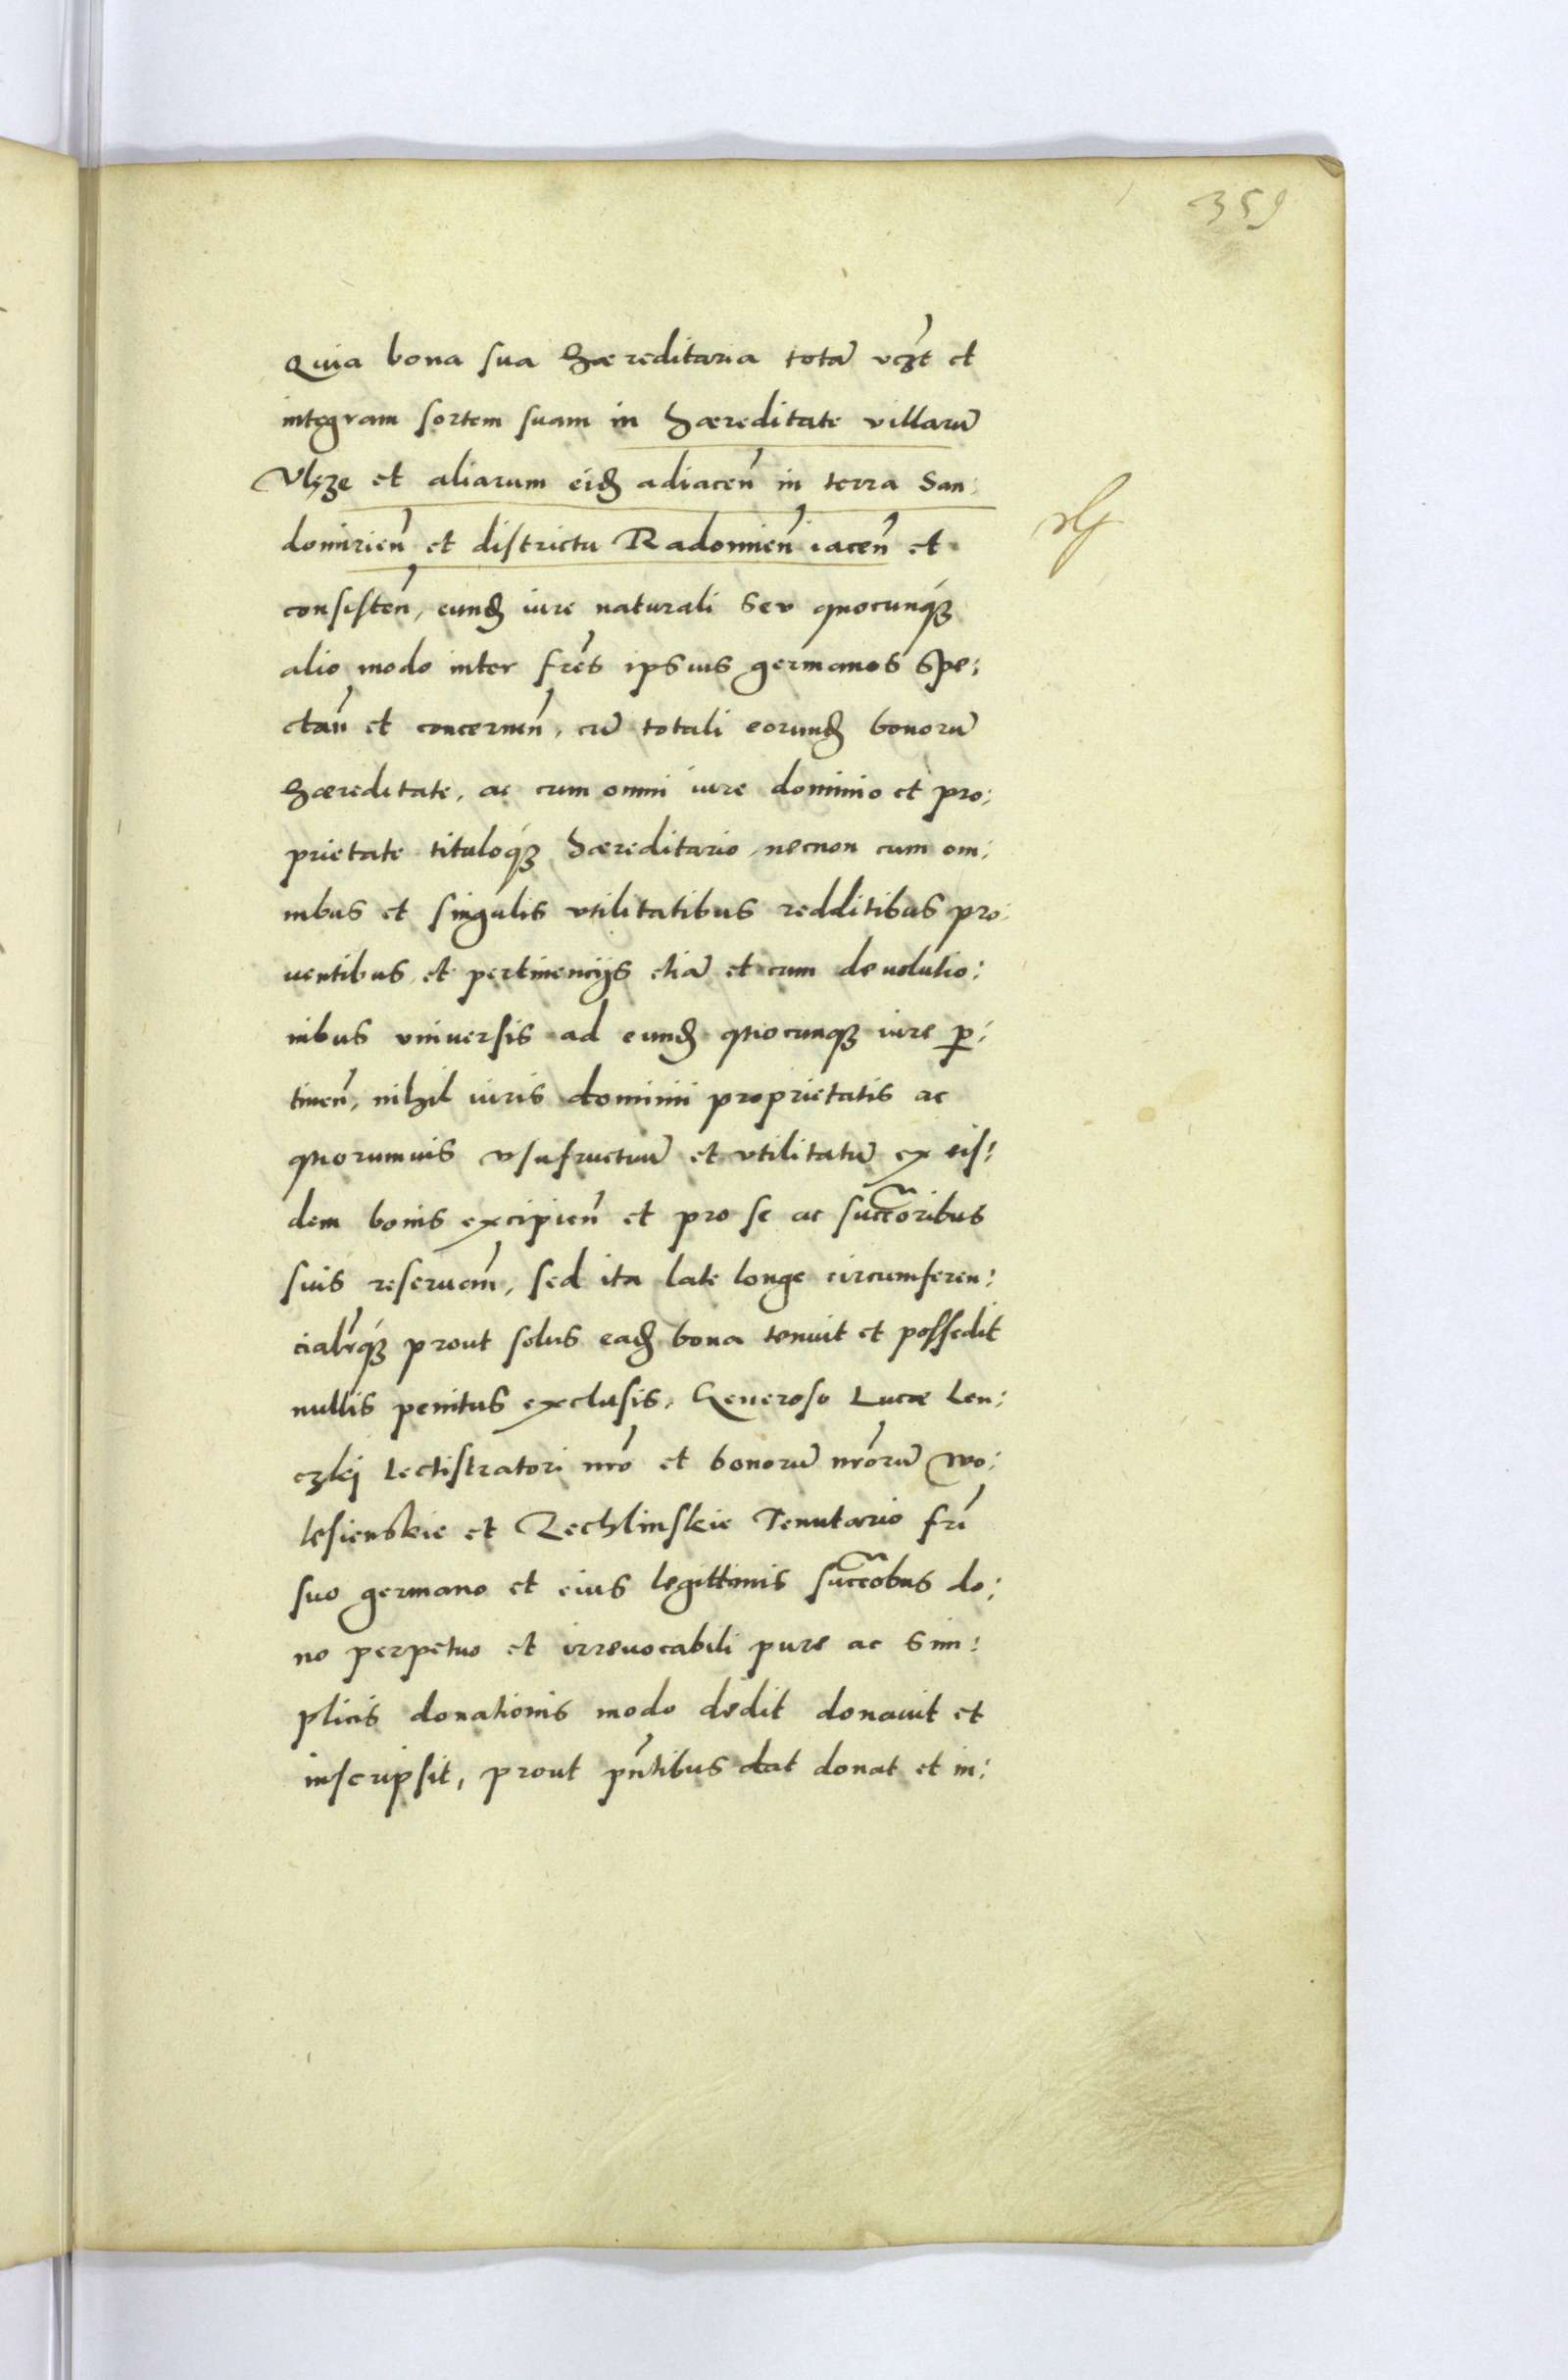 359
Quia bona sua haereditaria totā vczt et
integram sortem suam in haereditate villarū
Vlęze et aliarum eiđ adiaceñ in terra San:
domirieñ et districtu Radomieñ iaceñ et
consisteñ, eunđ iure naturali seu quocunq́ꝫ
alio modo inter frēs ipsius germanos spe:
ctañ et concerneñ, cū totali eorunđ bonorū
haereditate, ac cum omni iure dominio et pro:
prietate tituloq́ꝫ haereditario, necnon cum om:
nibus et singulis vtilitatibus redditibus pro:
uentibus et pertinencijs etiā et cum deuolutio:
nibus vniuersis ad eunđ quocunqꝫ iure ꝑ:
tineñ, nihil iuris dominii proprietatis ac
quorumuis vsufructuū et vtilitatū ex eis:
dem bonis excipieñ et pro se ac succ̃oribus
suis reserueñ, sed ita late longe circumferen:
cialr̃q́ꝫ prout solus eađ bona tenuit et possedit
nullis penitus exclusis, Generoso Lucae Len:
czkj Lectistratori nr̃o et bonorū nr̃orū Wo:
lesienskie et Zechlinskie Tenutario fr̃i
suo germano et eius legittimis succ̃obus do:
no perpetuo et irreuocabili pure ac sim:
plicis donationis modo dedit donauit et
inscripsit, prout pñtibus dat donat et in: